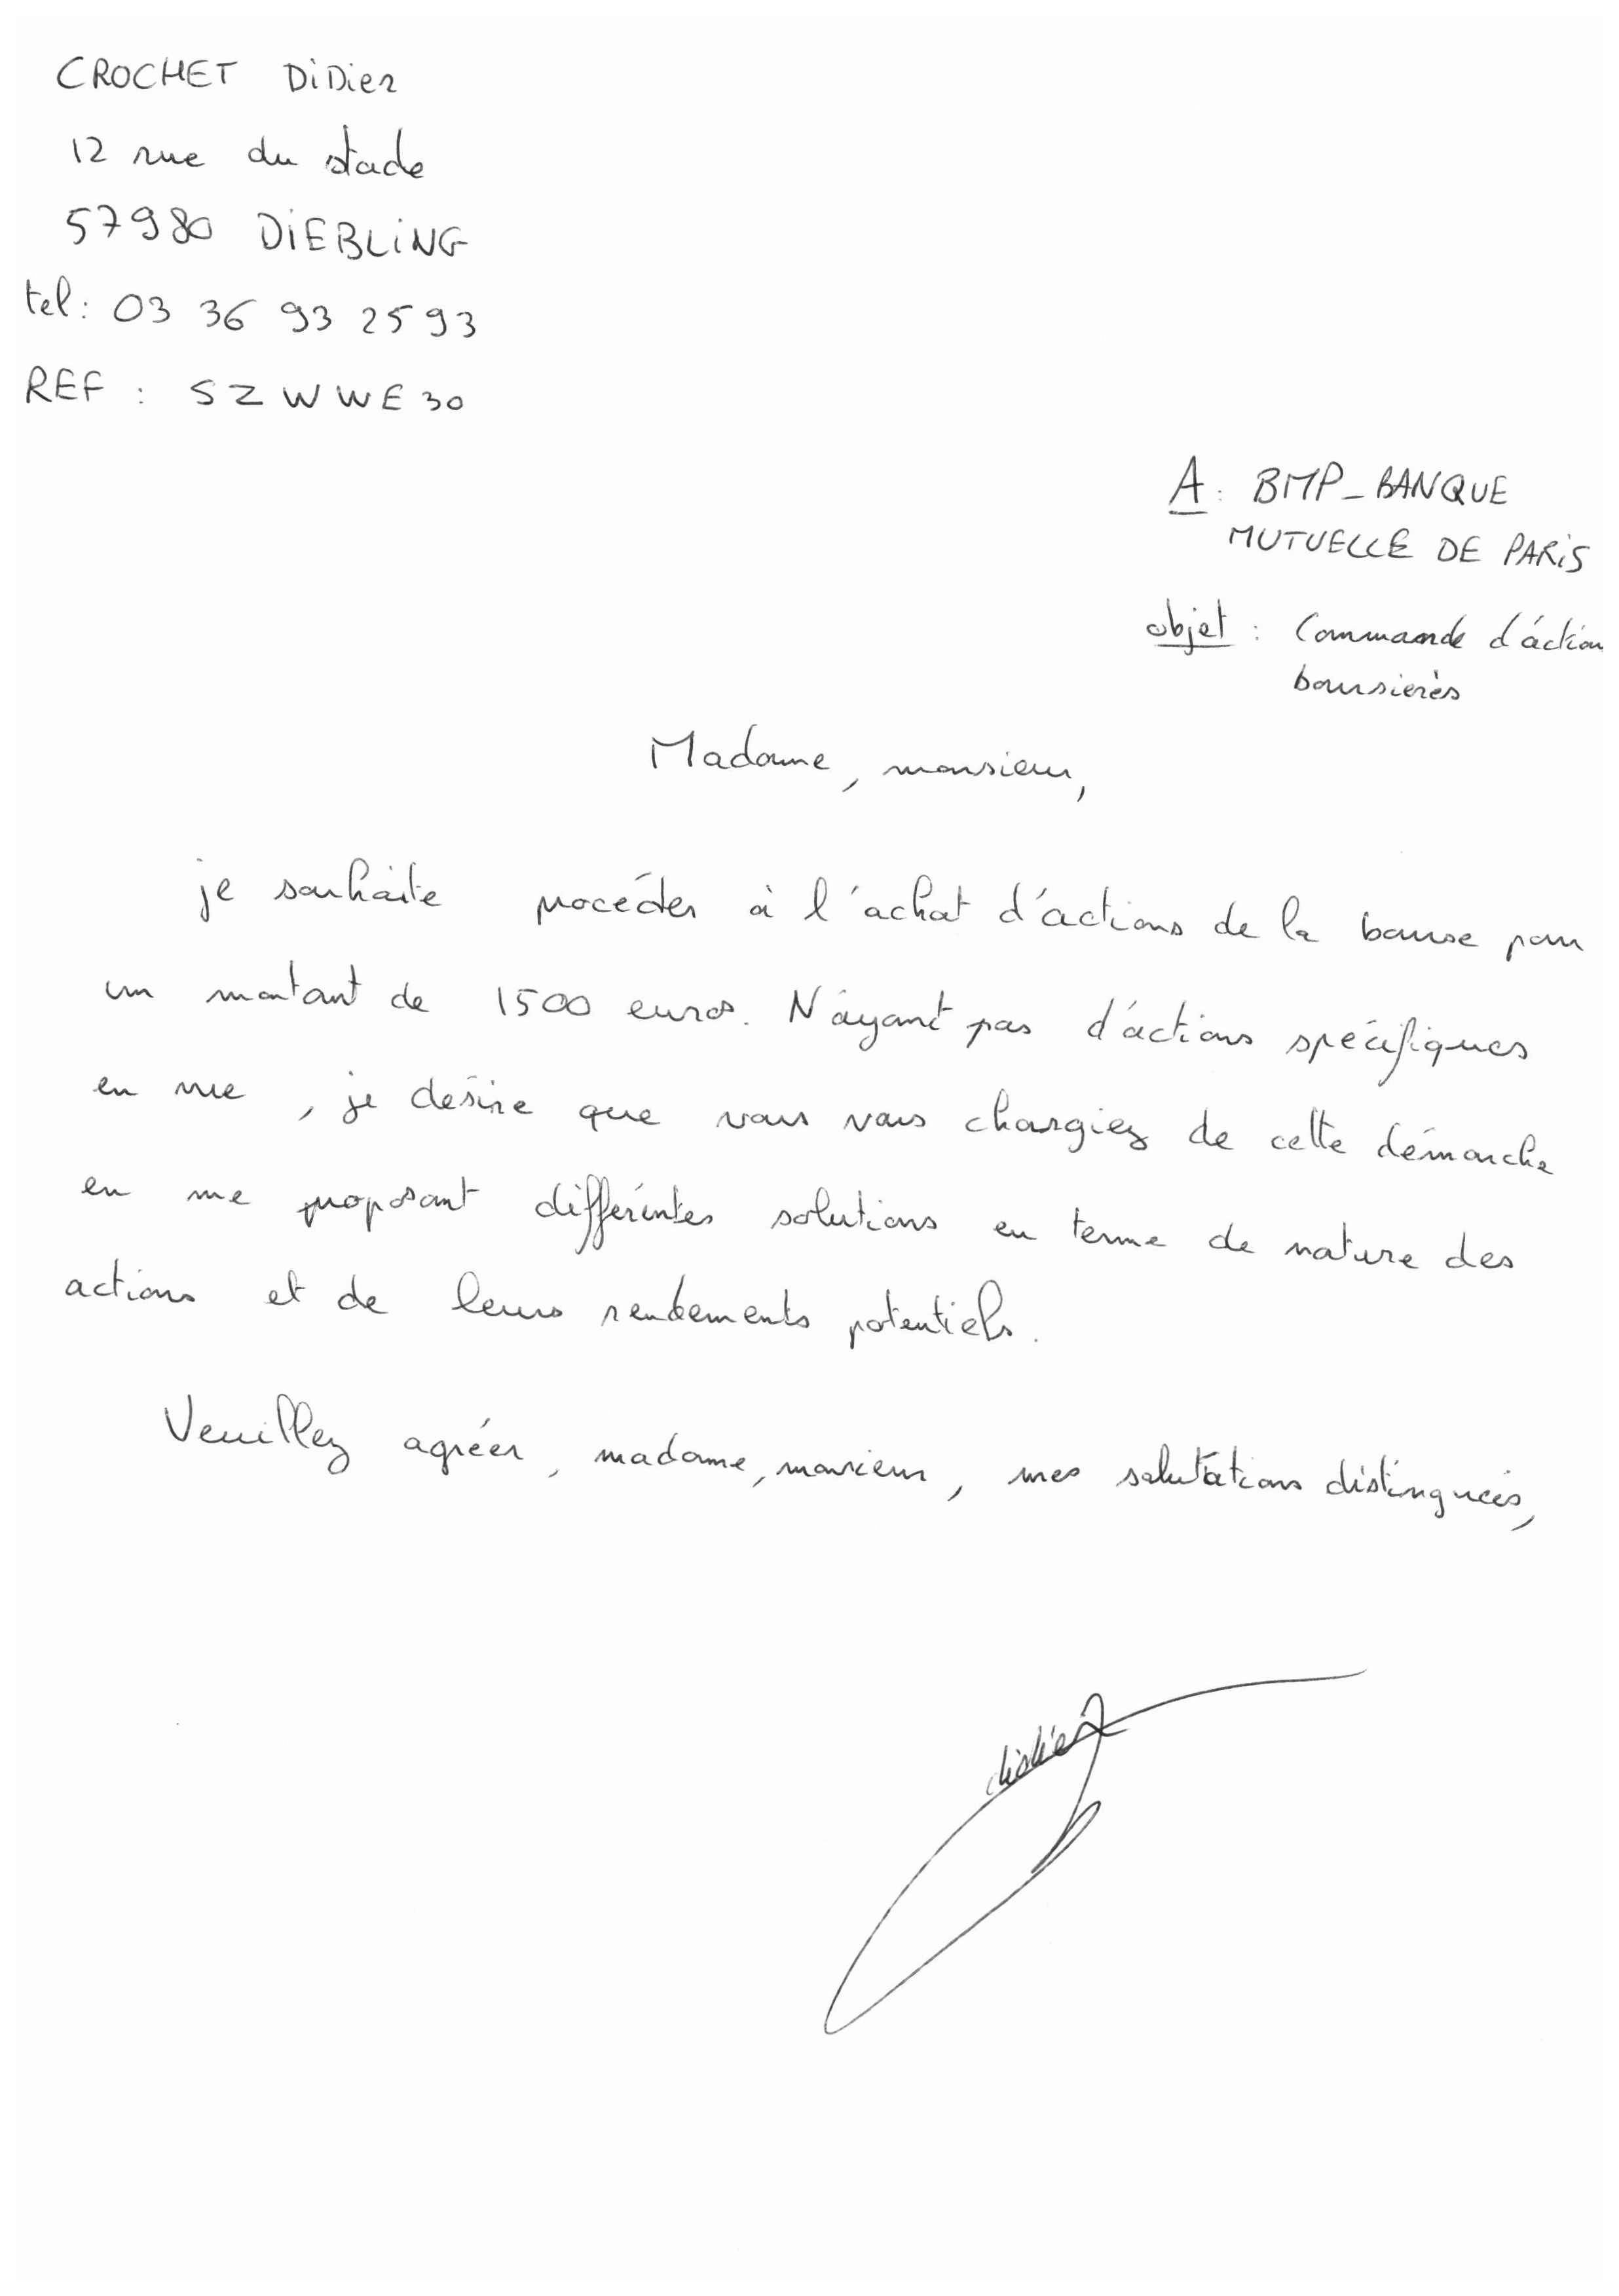 CROCHET DiDier
12 rue du stade
57980 DiEBLiNG
tel : 03 36 93 25 93
REF : SZWWE30
A : BMP_BANQUE
MUTUELLE DE PARiS
objet : Commande d'action
boursières
Madame, monsieur,
je souhaite procéder à l'achat d'actions de la bourse pour
un montant de 1500 euros. N'ayant pas d'actions spécifiques
en vue, je désire que vous vous chargiez de cette démarche
en me proposant différentes solutions en terme de nature des
actions et de leurs rendements potentiels.
Veuillez agréer, madame, monsieur, mes salutations distinguées,
didier